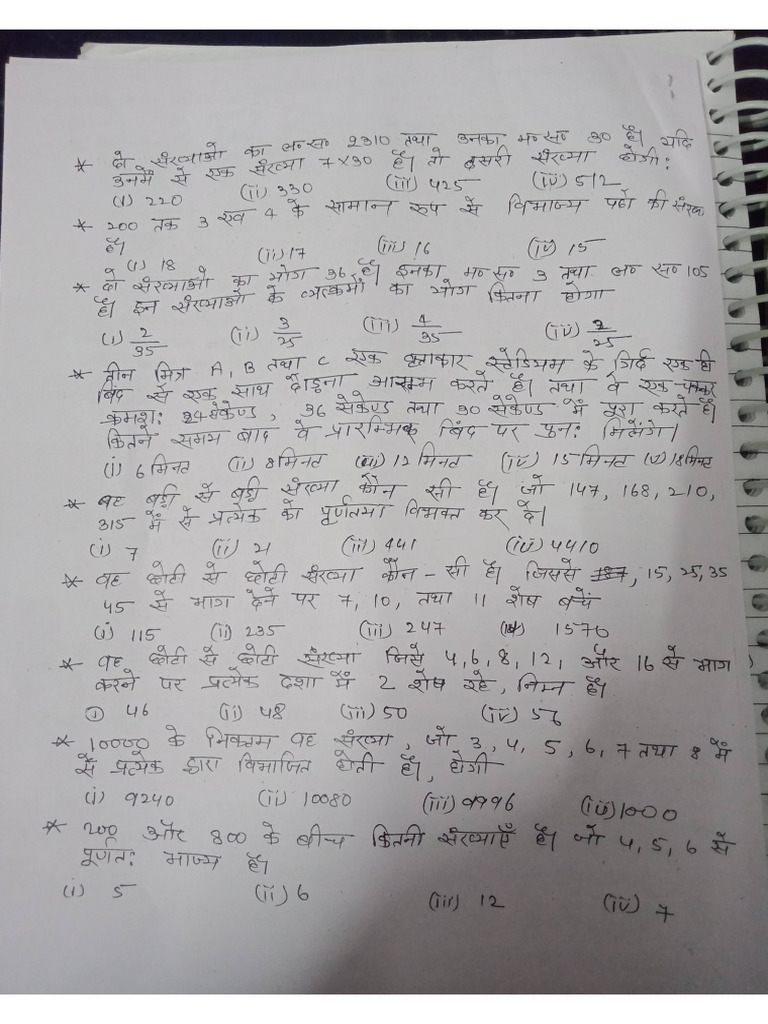 * दो संख्याओ का ल॰स॰ 2310 तथा उनका म॰स॰ 30 है। यदि
उनमें से एक संख्या 7x30 है। तो दूसरी संख्या होगी:
(i) 220 (ii) 330 (iii) 425 (iv) 512
* 200 तक 3 एवं 4 के सामान रूप से विभाज्य पदो की संख्या
है।
(i) 18 (ii) 17 (iii) 16 (iv) 15
* दो संख्याओ का योग 36 है। इनका म॰स॰ 3 तथा ल॰ स॰ 105
है। इन संख्याओ के व्यत्क्रमों का योग कितना होगा
(i) 2/35 (ii) 3/25 (iii) 4/35 (iv) 2/25
* तीन मित्र A, B तथा C एक वृत्ताकार स्टेडियम के गिर्द एक ही
बिंद से एक साथ दौड़ना आरम्भ करते है। तथा वे एक चक्कर
क्रमश: 24 सेकेण्ड, 36 सेकेण्ड तथा 30 सेकेण्ड में पूरा करते है।
कितने समय बाद वे प्रारम्भिक बिंद पर पुन: मिलेंगे।
(i) 6 मिनट (ii) 8 मिनट (iii) 12 मिनट (iv) 15 मिनट (v) 18 मिनट
* वह बड़ी से बड़ी संख्या कौन सी है। जो 147, 168, 210,
315 में से प्रत्येक को पूर्णतया विभक्त कर दे।
(i) 7 (ii) 21 (iii) 441 (iv) 4410
* वह छोटी से छोटी संख्या कौन-सी है। जिससे 15, 25, 35
45 से भाग देने पर 7, 10, तथा 11 शेष बचें
(i) 115 (ii) 235 (iii) 247 (iv) 1576
* वह छोटी से छोटी संख्या जिसे 4, 6, 8, 12, और 16 से भाग
करने पर प्रत्येक दशा में 2 शेष रहे, निम्न है।
(i) 46 (ii) 48 (iii) 50 (iv) 56
* 10000 के निकतम वह संख्या, जो 3, 4, 5, 6, 7 तथा 8 में
से प्रत्येक द्वारा विभाजित होती है, होगी
(i) 9240 (ii) 10080 (iii) 9996 (iv) 1000
* 200 और 800 के बीच कितनी संख्याएँ है। जो 4, 5, 6 से
पूर्णत: भाज्य है।
(i) 5 (ii) 6 (iii) 12 (iv) 7